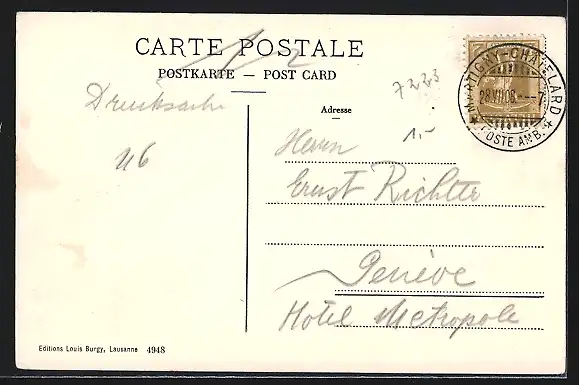 CARTE POSTALE
POSTKARTE — POST CARD
Drucksache
46
Adresse
7223
1.-
MARTIGNY-CHATELARD
28.VII.08.--7
* POSTE AMB. *
Herrn
Ernst Richter
Genève
Hotel Metropole
Editions Louis Burgy, Lausanne 4948